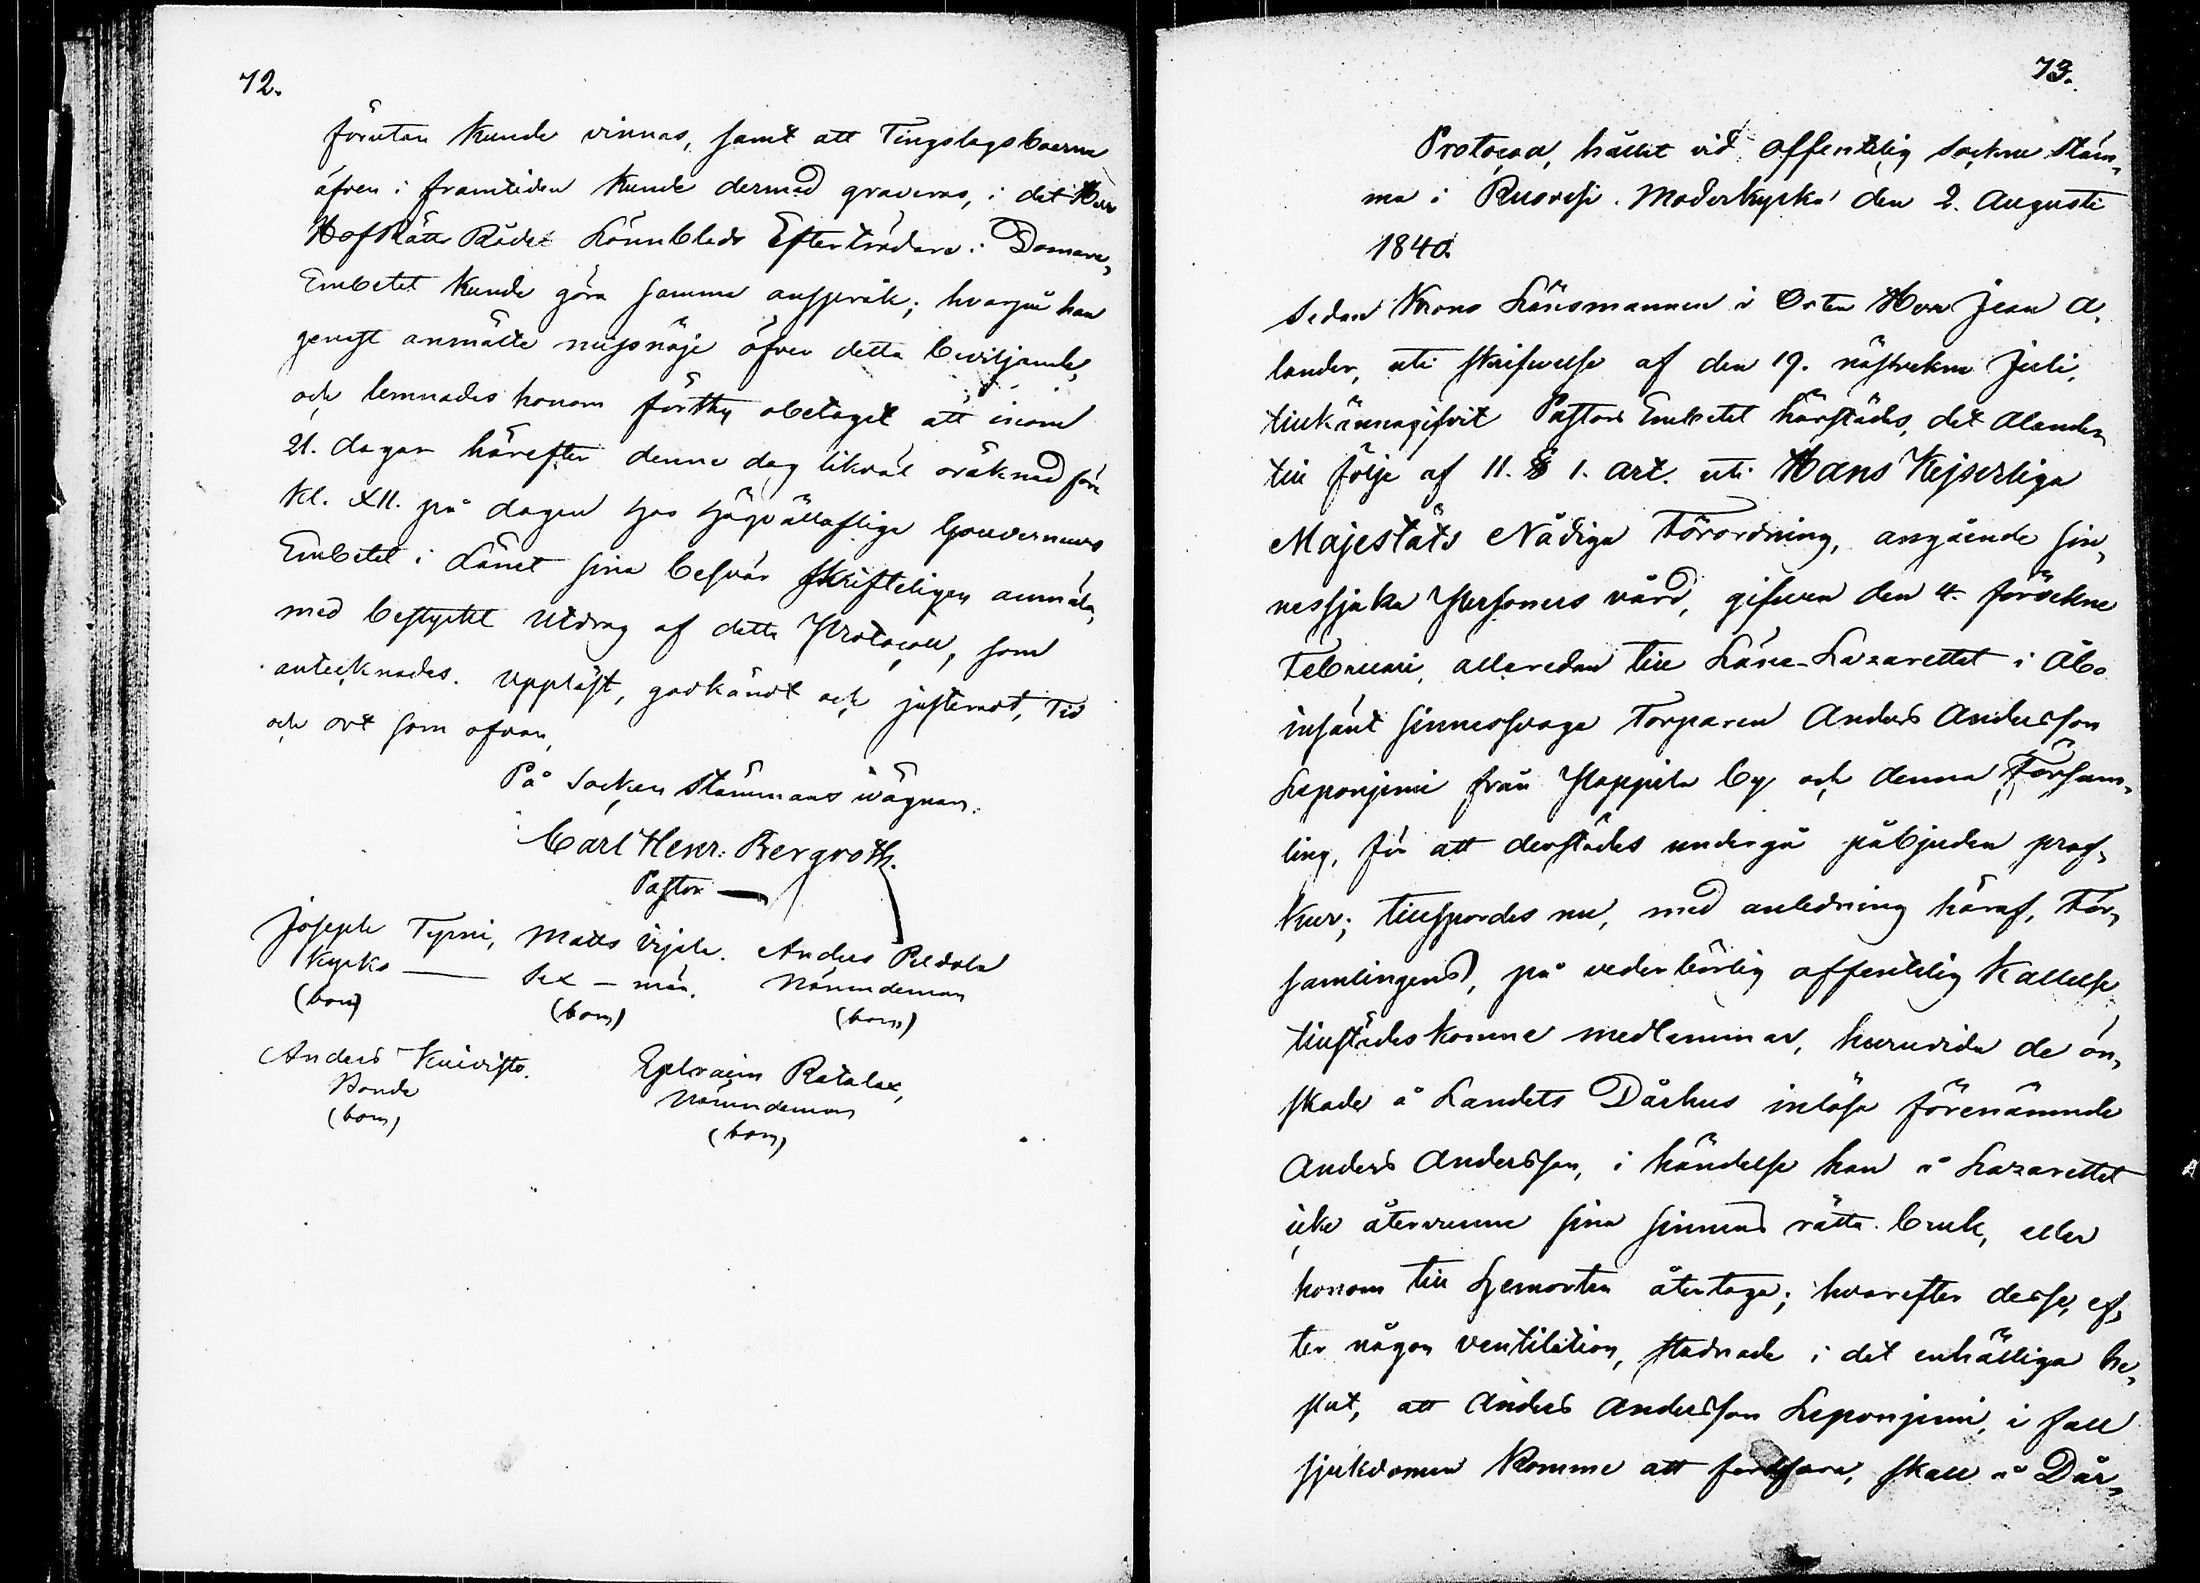 72.
förutan kunde vinnas, samt att Tingslagsboerne
äfven i framtiden kunde dermed graveras, i det Herr
HofRätts Rådet Lönnblads Efterträdare i Domare-
Embetet kunde göra samma anspråk; hvarpå han
genast anmälte missnöje öfver detta beviljande,
och lemnades honom förthy obetaget att inom
21. dagar härefter denne dag likväl oräknad före
Kl. XII. på dagen hos Högvällofliga Gouverneurs
Embetet i Länet sina besvär skrifteligen anmäla,
med bestyrkt Utdrag af detta Protocoll, som
antecknades. Uppläst, godkändt och justeradt, Tid
och ort som ofvan,
På Socken Stämmans vägnar.
Carl Henr. Bergroth.
Pastor
Joseph Tyrni, Matts Irjala. Anders Peldola
Kyrko — Sex – män. Nämndeman
(bom) (bom) (bom)
Anders Kuivisto. Ephraim Ratalax,
Bonde Nämndeman
(bom) (bom)
73.
Protocoll, hållit vid offentelig Sockne Stäm-
ma i Ruovesi Moderkyrka den 2. Augusti
1840.
Sedan Krono Länsmannen i Orten Herr Jean A-
lander, uti skrifvelse af den 19. nästvekne Juli,
tillkännagifvit Pastors Embetet härstädes, det Alander
till följe af 11. § 1. art. uti Hans Kejserliga
Majestäts Nådiga Förordning, angående sin-
nessjuka Personers vård, gifven den 4. förvekne
Februari, allaredan till Läne-Lazarettet i Åbo
insändt sinnessvaga Torparen Anders Andersson
Leponjemi från Pappila by och denna Försam-
ling, för att derstädes undergå påbjuden prof-
kur; tillspordes nu, med anledning häraf, För-
samlingens, på vederbörlig offentelig Kallelse
tillstädeskomne medlemmar, huruvida de ön-
skade å Landets Dårhus inlösa förenämnde
Anders Andersson, i händelse han å Lazarettet
icke återvunne sina sinnens rätta bruk, eller
honom till hemorten återtaga; hvarefter desse, ef-
ter någon ventilation, stadnade i det enhälliga be-
slut, att Anders Andersson Leponjemi, i fall
sjukdomen komme att fortfara, skall å Dår-